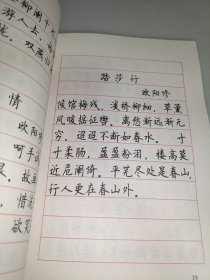 柳阑干
游人去
栊,双燕归
情
欧阳
呵手试
故画
惜
欲笑
踏莎行
欧阳修
候馆梅残,溪桥柳细,草薰
风暖摇征辔。离愁渐远渐无
穷,迢迢不断如春水。 寸
寸柔肠,盈盈粉泪,楼高莫
近危阑倚。平芜尽处是春山,
行人更在春山外。